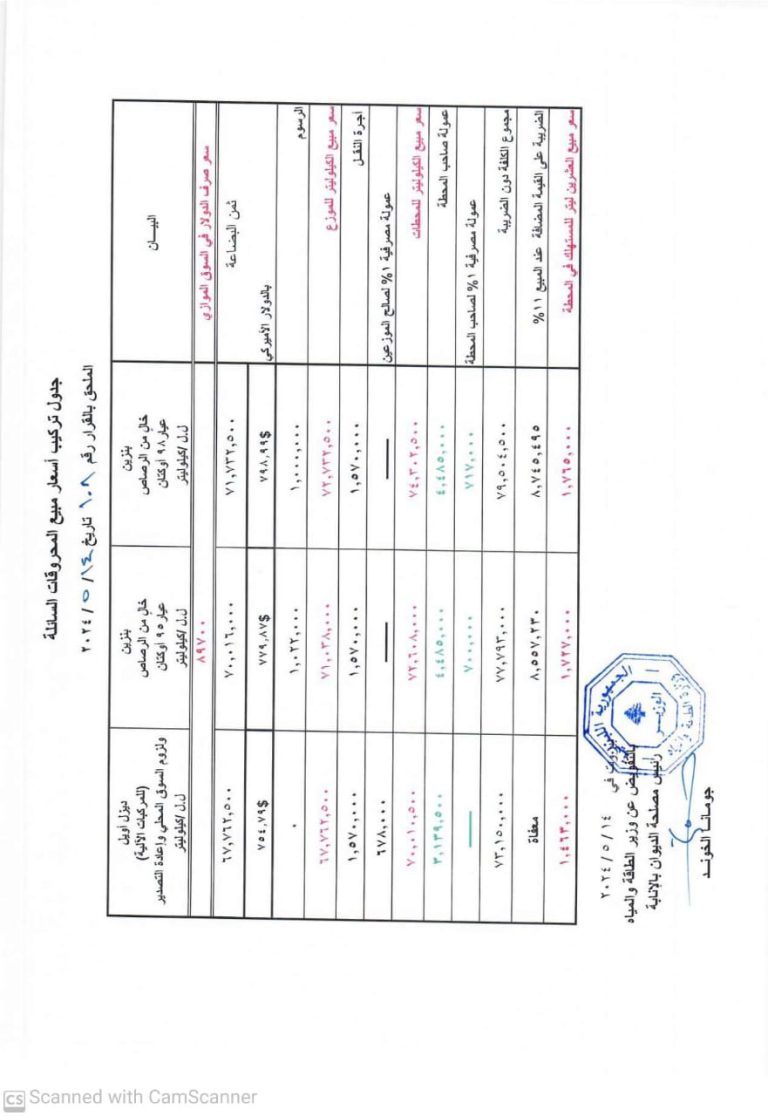 جدول تركيب أسعار مبيع المحروقات السائلة
الملحق بالقرار رقم ١٠٨ تاريخ ١٤ / ٥ / ٢٠٢٤
البيان
بنزين
خالٍ من الرصاص
عيار ٩٨ أوكتان
ل.ل/كيلوليتر
بنزين
خالٍ من الرصاص
عيار ٩٥ أوكتان
ل.ل/كيلوليتر
ديزل أويل
(للمركبات الآلية)
ولزوم السوق المحلي وإعادة التصدير
ل.ل/كيلوليتر
سعر صرف الدولار في السوق الموازي ٨٩٧٠٠
ثمن البضاعة ٧١,٧٣٢,٥٠٠ ٧٠,٠١٦,٠٠٠ ٦٧,٧٦٢,٥٠٠
بالدولار الأميركي ٧٩٨,٩٩$ ٧٧٩,٨٧$ ٧٥٤,٧٩$
الرسوم ١,٠٠٠,٠٠٠ ١,٠٢٢,٠٠٠ ٠
سعر مبيع الكيلوليتر للموزع ٧٢,٧٣٢,٥٠٠ ٧١,٠٣٨,٠٠٠ ٦٧,٧٦٢,٥٠٠
أجرة النقل ١,٥٧٠,٠٠٠ ١,٥٧٠,٠٠٠ ١,٥٧٠,٠٠٠
عمولة مصرفية ١% لصالح الموزعين — — ٦٧٨,٠٠٠
سعر مبيع الكيلوليتر للمحطات ٧٤,٣٠٢,٥٠٠ ٧٢,٦٠٨,٠٠٠ ٧٠,٠١٠,٥٠٠
عمولة صاحب المحطة ٤,٤٨٥,٠٠٠ ٤,٤٨٥,٠٠٠ ٣,١٣٩,٥٠٠
عمولة مصرفية ١% لصاحب المحطة ٧١٧,٠٠٠ ٧٠٠,٠٠٠ —
مجموع الكلفة دون الضريبة ٧٩,٥٠٤,٥٠٠ ٧٧,٧٩٣,٠٠٠ ٧٣,١٥٠,٠٠٠
الضريبة على القيمة المضافة عند المبيع ١١% ٨,٧٤٥,٤٩٥ ٨,٥٥٧,٢٣٠ معفاة
سعر مبيع العشرين ليتر للمستهلك في المحطة ١,٧٦٥,٠٠٠ ١,٧٢٧,٠٠٠ ١,٤٦٣,٠٠٠
بيروت في ١٤ / ٥ / ٢٠٢٤
بالتفويض عن وزير الطاقة والمياه
رئيس مصلحة الديوان بالإنابة
جومانا الخوند
الجمهورية اللبنانية
الوزير
وزارة الطاقة والمياه
CS Scanned with CamScanner